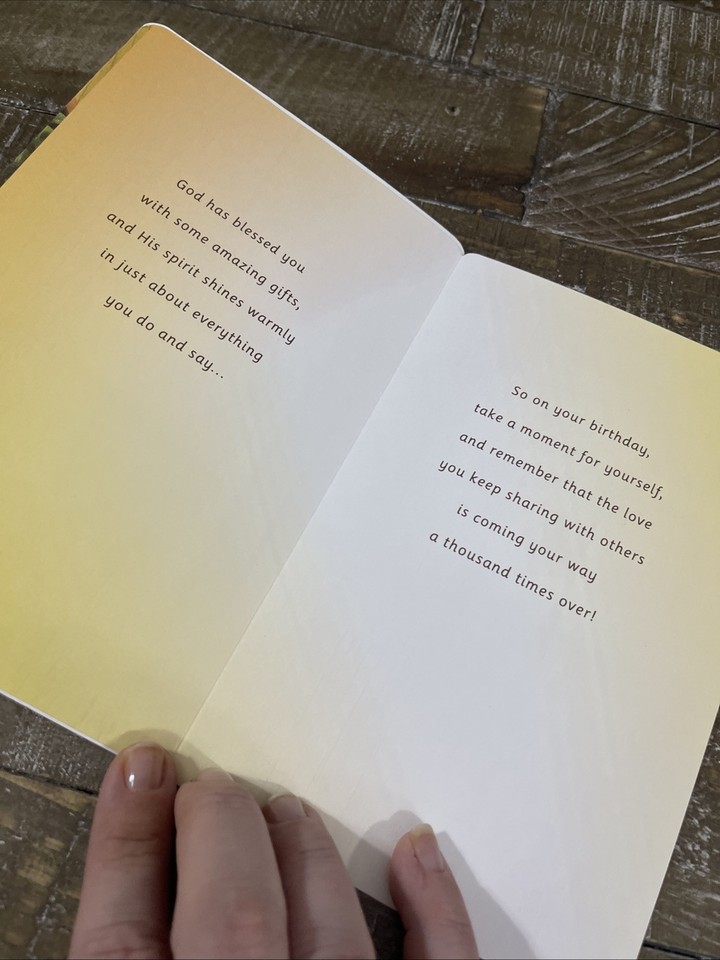 God has blessed you
with some amazing gifts,
and His spirit shines warmly
in just about everything
you do and say...
So on your birthday,
take a moment for yourself,
and remember that the love
you keep sharing with others
is coming your way
a thousand times over!